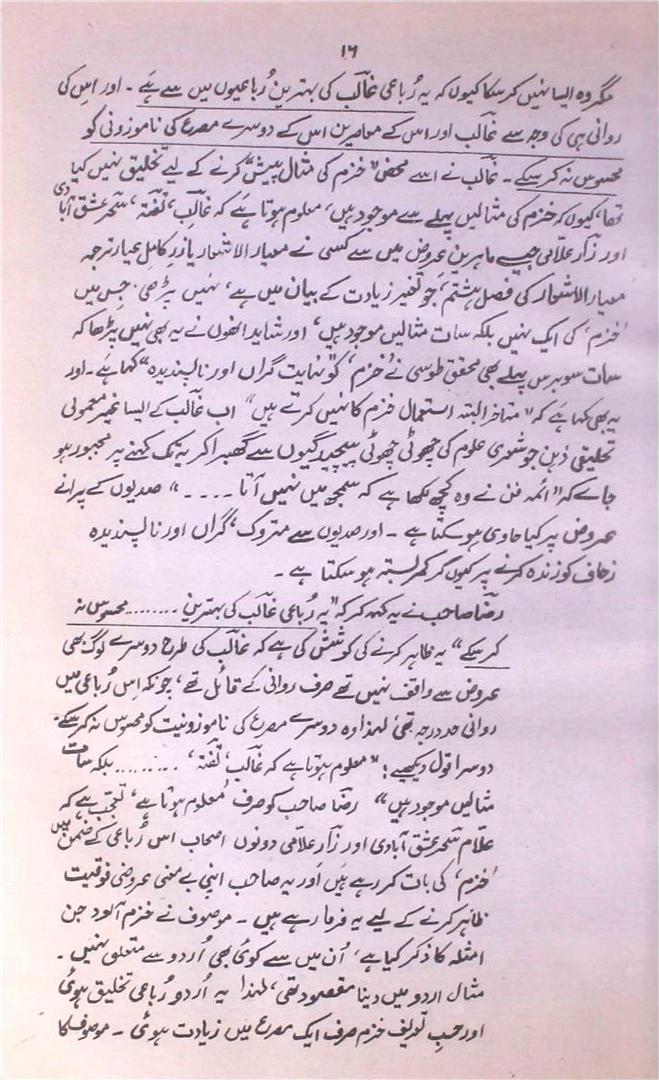 ۱۶
مگر وہ ایسا نہیں کر سکا کیوں کہ یہ رُباعی غالبؔ کی بہترین رُباعیوں میں سے ہے ۔ اور اس کی
روانی ہی کی وجہ سے غالبؔ اور اس کے معاصرین اس کے دوسرے مصرع کی ناموزونی کو
محسوس نہ کر سکے ۔ غالبؔ نے اسے محض "خزم کی مثال پیش کرنے کے لیے تخلیق نہیں کیا
تھا، کیوں کہ خزم کی مثالیں پہلے سے موجود ہیں، معلوم ہوتا ہے کہ غالبؔ، تفتہؔ، سحرؔ عشق آبادی
اور زارؔ علامی جیسے ماہرینِ عروض میں سے کسی نے معیار الاشعار یا زرِ کامل عیار ترجمہ
معیار الاشعار کی فصل ہشتم، جو تغیر زیادت کے بیان میں ہے، نہیں پڑھی، جس میں
'خزم' کی ایک نہیں بلکہ سات مثالیں موجود ہیں، اور شاید انھوں نے یہ بھی نہیں پڑھا کہ
سات سو برس پہلے بھی محقق طوسی نے 'خزم' کو "نہایت گراں اور ناپسندیدہ" کہا ہے ۔ اور
یہ بھی کہا ہے کہ "متاخر البتہ استعمال خزم کا نہیں کرتے ہیں" اب غالبؔ کے ایسا غیر معمولی
تخلیقی ذہن جو شعری علوم کی چھوٹی چھوٹی پیچیدگیوں سے گھبرا کر یہ تک کہنے پر مجبور ہو
جائے کہ "ائمہ فن نے وہ کچھ لکھا ہے کہ سمجھ میں نہیں آتا ۔۔۔۔" صدیوں کے پرانے
عروض پر کیا حاوی ہو سکتا ہے ۔ اور صدیوں سے متروک، گراں اور ناپسندیدہ
زحاف کو زندہ کرنے پر کیوں کر کمر بستہ ہو سکتا ہے ۔
رضاؔ صاحب نے یہ کہہ کر کہ "یہ رُباعی غالبؔ کی بہترین ........ محسوس نہ
کر سکے" یہ ظاہر کرنے کی کوشش کی ہے کہ غالبؔ کی طرح دوسرے لوگ بھی
عروض سے واقف نہیں تھے صرف روانی کے قائل تھے، چونکہ اس رُباعی میں
روانی حد درجہ تھی لہٰذا وہ دوسرے مصرع کی ناموزونیت کو محسوس نہ کر سکے۔
دوسرا قول دیکھیے؛ "معلوم ہوتا ہے کہ غالبؔ، تفتہؔ، ......... بلکہ سات
مثالیں موجود ہیں" رضاؔ صاحب کو صرف 'معلوم ہوتا ہے' تعجب ہے کہ
علام سحرؔ عشق آبادی اور زارؔ علامی دونوں اصحاب اس رُباعی کے ضمن میں
'خزم' کی بات کر رہے ہیں اور یہ صاحب اپنی بے معنی عروضی فوقیت
ظاہر کرنے کے لیے یہ فرما رہے ہیں ۔ موصوف نے خزم آلود جن
امثلہ کا ذکر کیا ہے، اُن میں سے کوئی بھی اُردو سے متعلق نہیں ۔
مثال اردو میں دینا مقصود تھی، لہٰذا یہ اُردو رُباعی تخلیق ہوئی
اور حسبِ تعریف خزم صرف ایک مصرع میں زیادت ہوئی ۔ موصوف کا